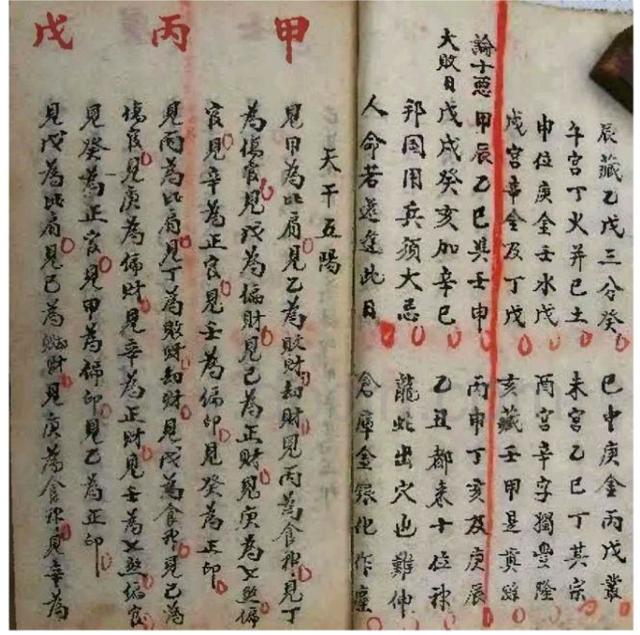 辰藏乙戊三分癸 巳中庚金丙戊叢
午宫丁火并己土 未宫乙己丁其宗
申位庚金壬水戊 酉宫辛字獨豐隆
戌宫辛金及丁戊 亥藏壬甲是真踪
論十惡
大敗日
甲辰乙巳與壬申 丙申丁亥及庚辰
戊戌癸亥加辛巳 乙丑都來十位神
邦国用兵須大忌 龍蛇出穴也難伸
人命若還逢此日 倉庫金銀化作塵
天干五陽
甲
見甲為比肩見乙為敗財劫財見丙為食神見丁
為傷官見戊為偏財見己為正財見庚為七煞偏
官見辛為正官見壬為偏印見癸為正印
丙
見丙為比肩見丁為敗財劫財見戊為食神見己為
傷官見庚為偏財見辛為正財見壬為七煞偏官
見癸為正官見甲為偏印見乙為正印
戊
見戊為比肩見己為敗財見庚為食神見辛為